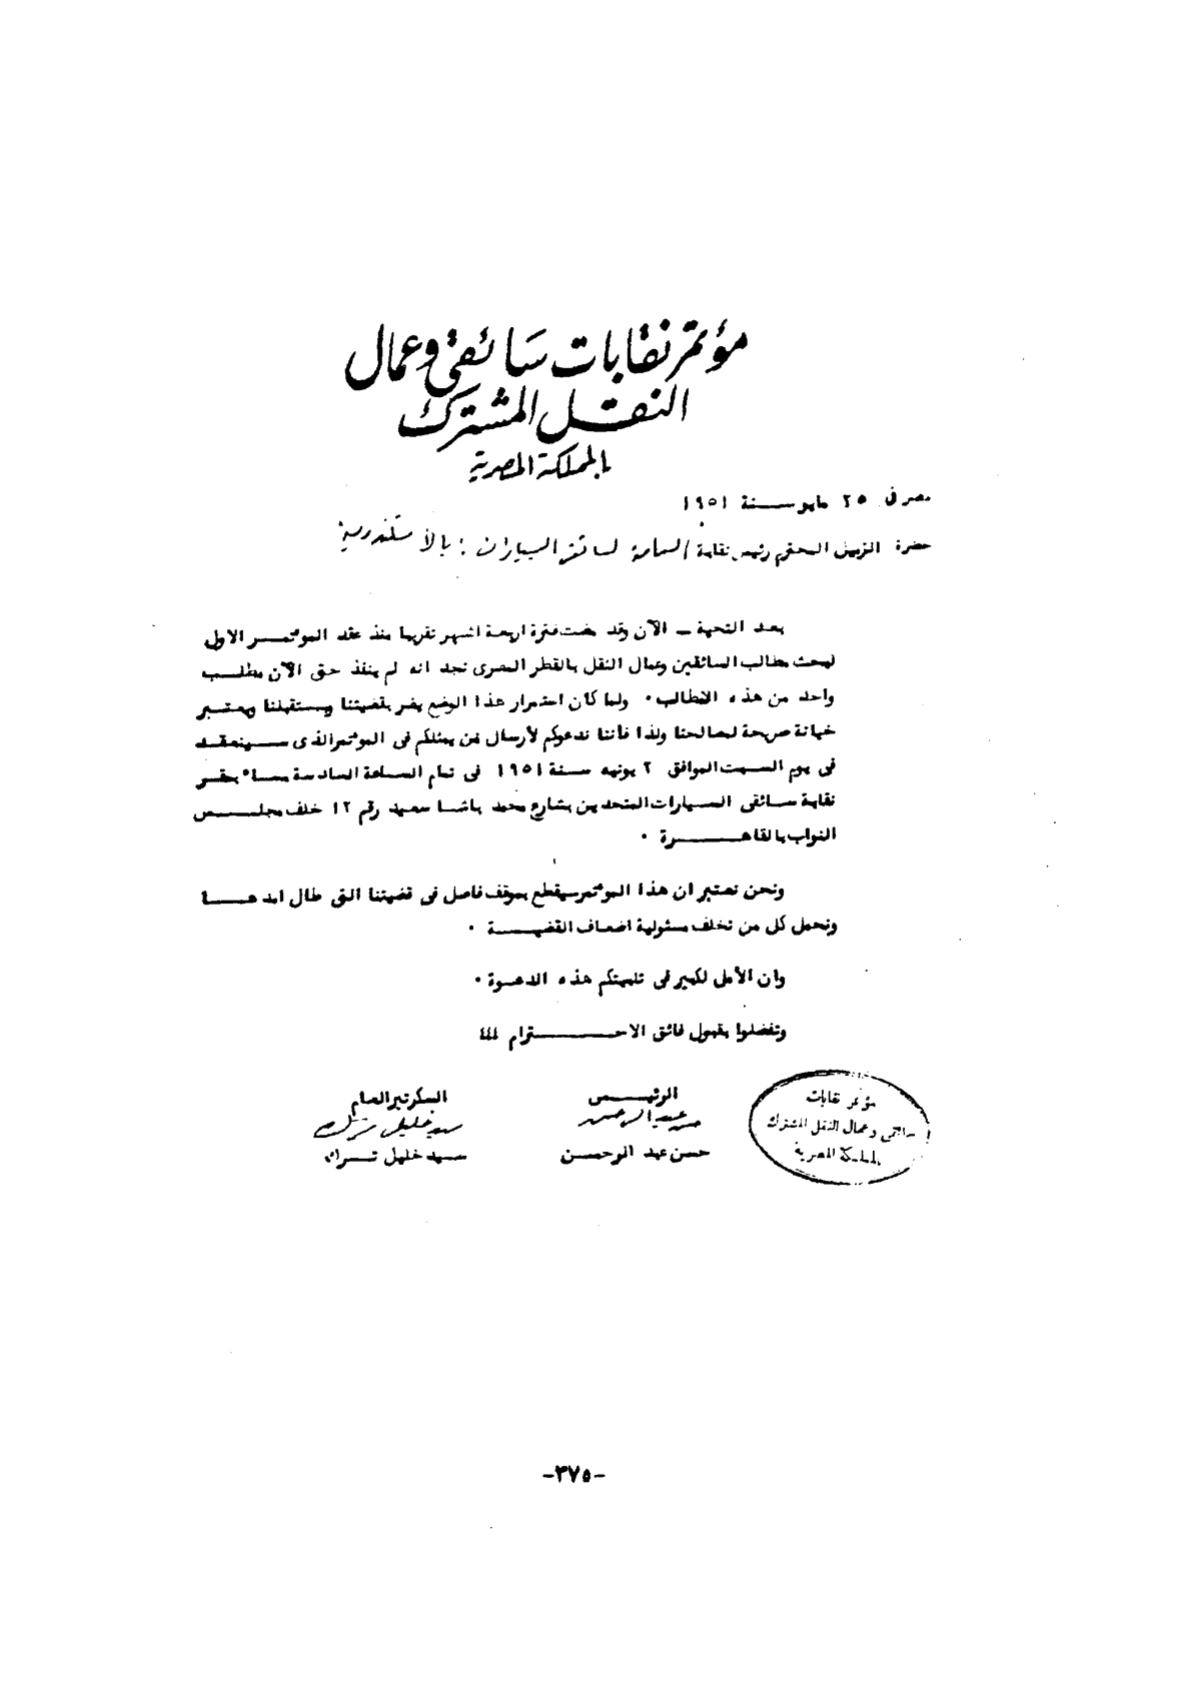 مؤتمر نقابات سائقى وعمال
النقل المشترك
بالمملكة المصرية
مصر فى ٢٥ مايو سنة ١٩٥١
حضرة الزميل المحترم رئيس نقابة العامة لسائقى السيارات بالأسكندرية
بعد التحية ـ الآن وقد مضت فترة اربعة اشهر تقريبا منذ عقد المؤتمر الاول
لبحث مطالب السائقين وعمال النقل بالقطر المصرى نجد انه لم ينفذ حتى الآن مطلب
واحد من هذه المطالب ٠ ولما كان استمرار هذا الوضع يضر بقضيتنا ومستقبلنا ويعتبر
خيانة صريحة لمصالحنا ولذا فاننا ندعوكم لأرسال من يمثلكم فى المؤتمر الذى سينعقد
فى يوم السبت الموافق ٢ يونيه سنة ١٩٥١ فى تمام الساعة السادسة مساء بمقر
نقابة سائقى السيارات المتحدين بشارع محمد باشا سعيد رقم ١٢ خلف مجلس
النواب بالقاهرة ٠
ونحن نعتبر ان هذا المؤتمر سيقطع بموقف فاصل فى قضيتنا التى طال ابدعا
ونحمل كل من تخلف مسئولية اضعاف القضية ٠
وان الأمل لكبير فى تلبيتكم هذه الدعوة ٠
وتفضلوا بقبول فائق الاحترام ،،،
مؤتمر نقابات
سائقى وعمال النقل المشترك
بالمملكة المصرية
الرئيس
حسن عبد الرحمن
حسن عبد الرحمن
السكرتير العام
سيد خليل ترك
سيد خليل ترك
-٣٧٥-